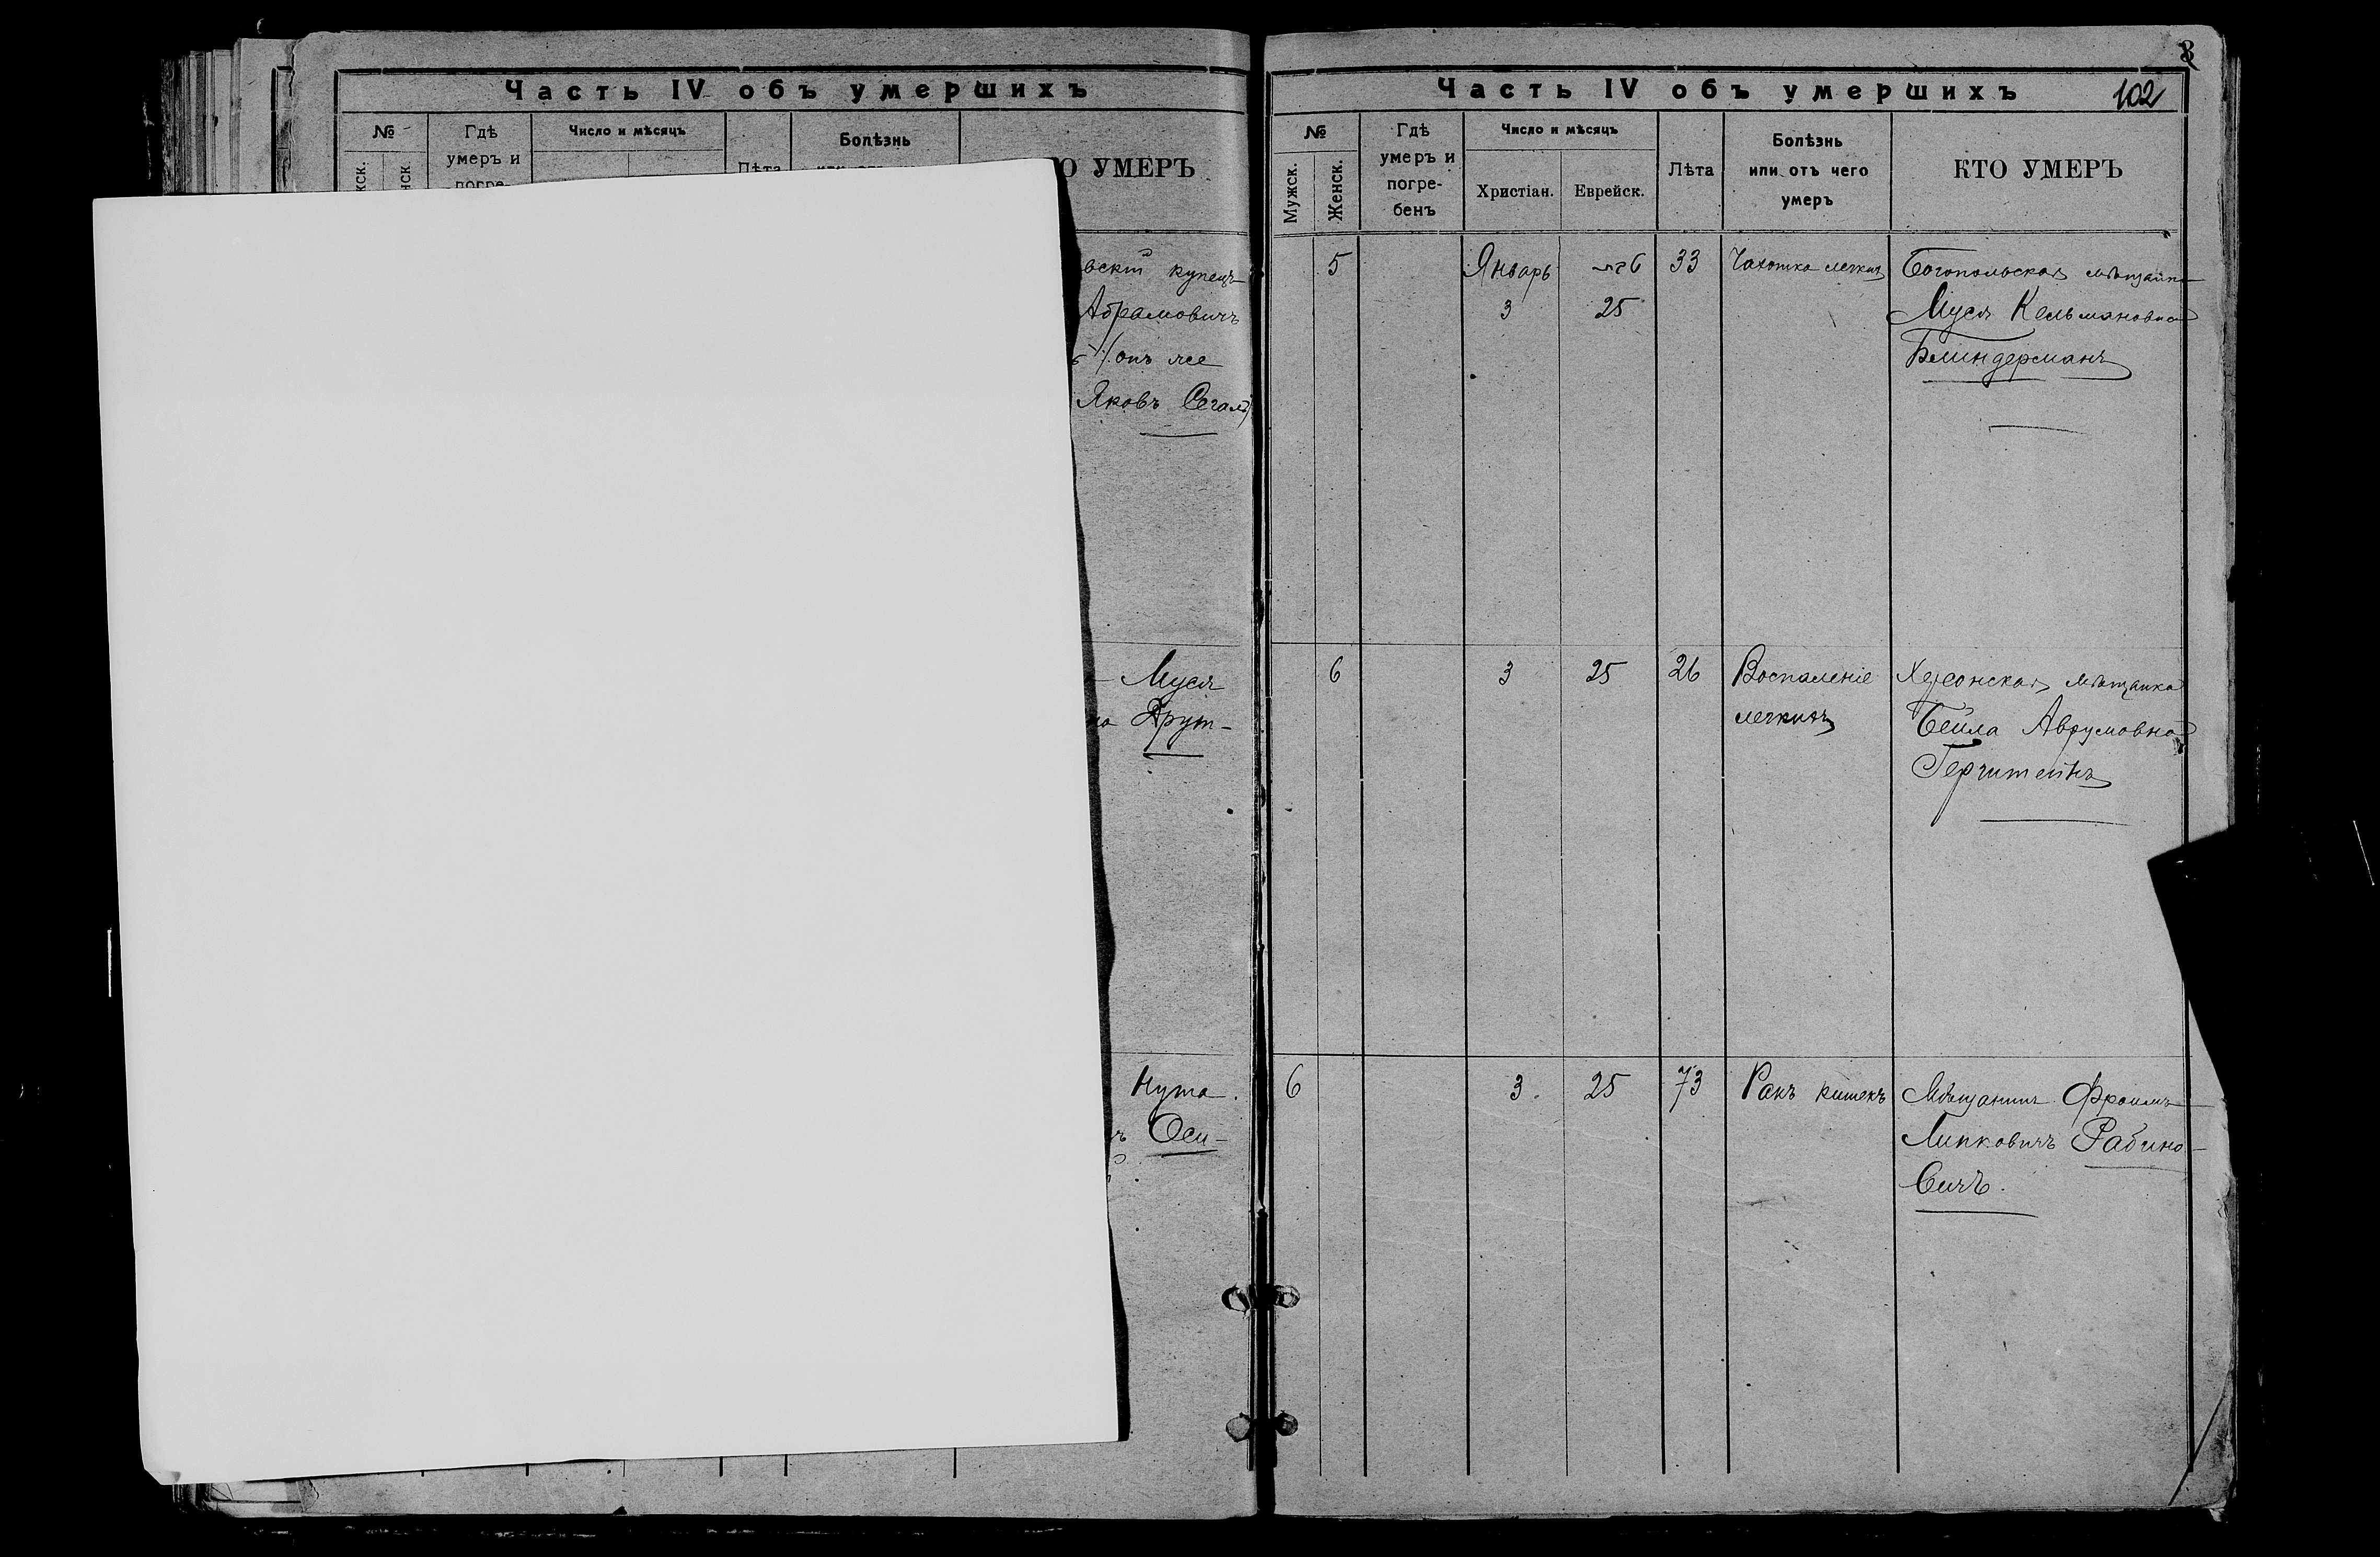 Часть IV объ умершихъ
№
Гдѣ
умеръ и
погре-
Число и мѣсяцъ
Лѣта
Болѣзнь
О УМЕРЪ
вскій купецъ
Абрамовичъ
онъ же
Яковъ Сегалъ
Муся
на Крут-
Нута
Оси-
8
102
Часть IV объ умершихъ
№
Мужск.
Женск.
Гдѣ
умеръ и
погре-
бенъ
Число и мѣсяцъ
Христіан.
Еврейск.
Лѣта
Болѣзнь
или отъ чего
умеръ
КТО УМЕРЪ
5 Январь טבת 33 Чахотка легкихъ Богопольская мѣщанка
3 25 Муся Кельмановна
Блиндерманъ
6 3 25 26 Воспаленіе Херсонская мѣщанка
легкихъ Бейла Аврумовна
Герчштейнъ
6 3. 25 73 Ракъ кишекъ Мѣщанинъ Фроимъ
Липковичъ Рабино-
вичъ.